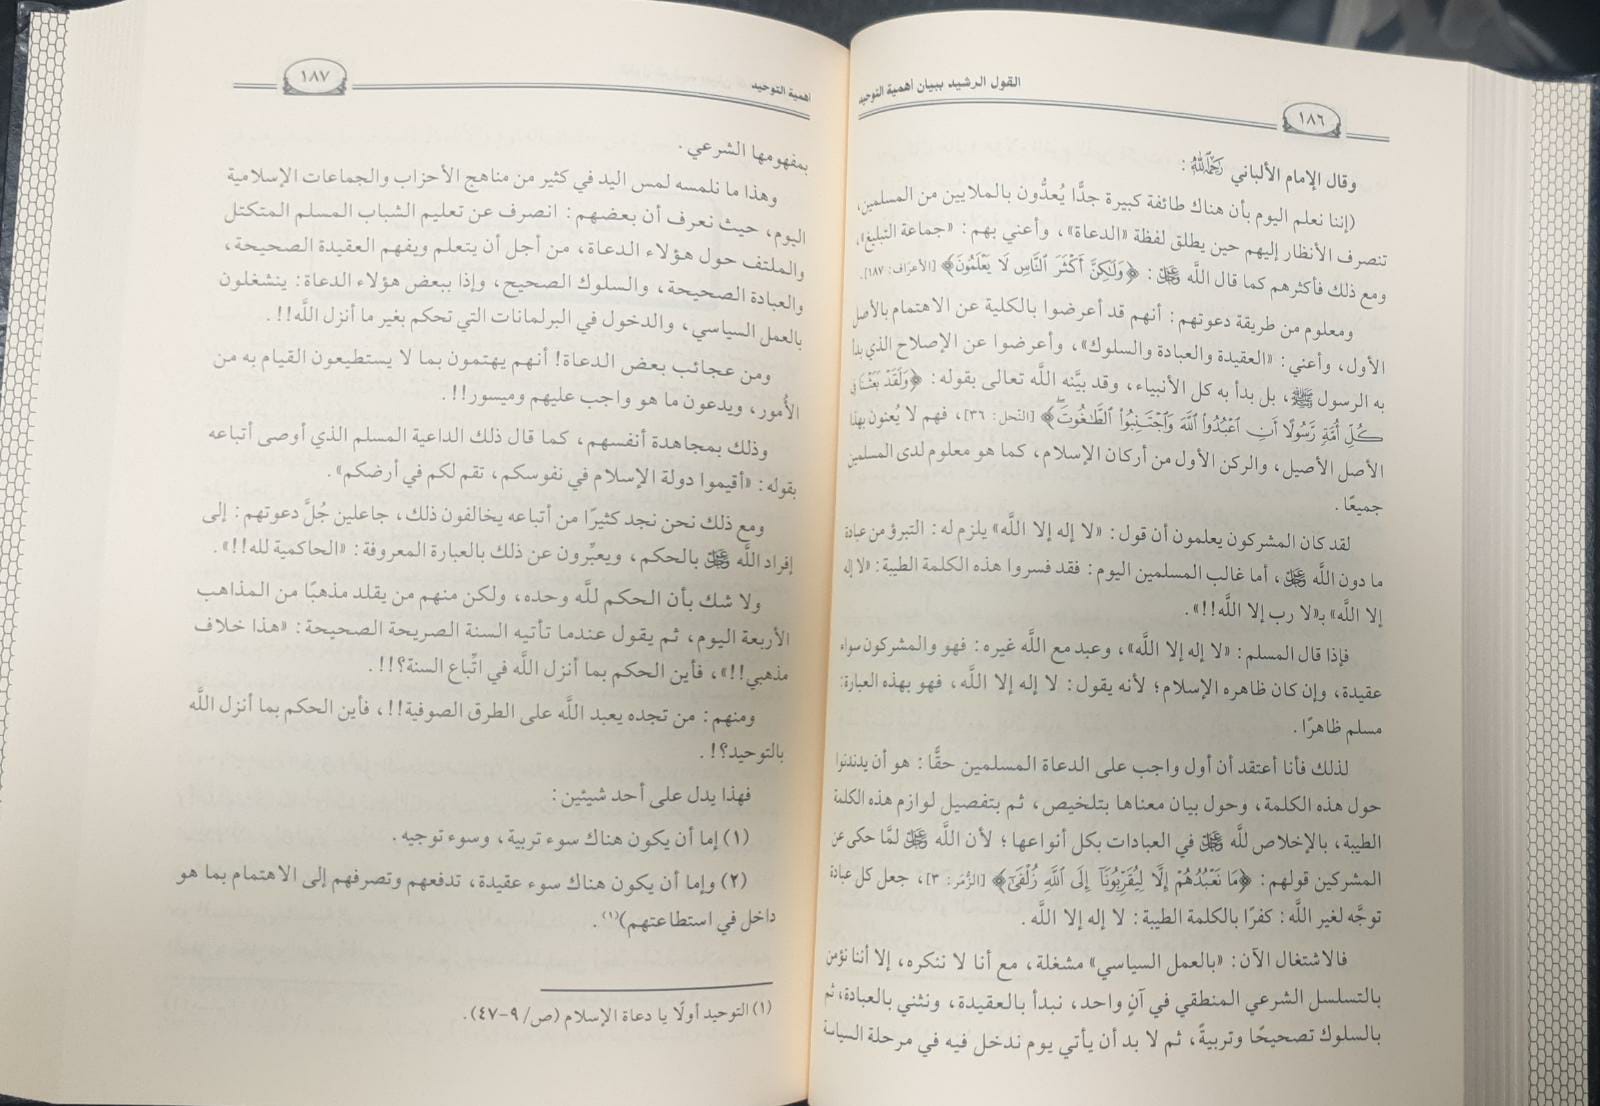 القول الرشيد ببيان أهمية التوحيد
١٨٦
وقال الإمام الألباني رَحِمَهُ ٱللَّهُ :
(إننا نعلم اليوم بأن هناك طائفة كبيرة جدًّا يُعدُّون بالملايين من المسلمين،
تنصرف الأنظار إليهم حين يطلق لفظة «الدعاة»، وأعني بهم: «جماعة التبليغ»،
ومع ذلك فأكثرهم كما قال اللَّه عَزَّوَجَلَّ : ﴿وَلَٰكِنَّ أَكْثَرَ ٱلنَّاسِ لَا يَعْلَمُونَ﴾ [الأعراف: ١٨٧].
ومعلوم من طريقة دعوتهم: أنهم قد أعرضوا بالكلية عن الاهتمام بالأصل
الأول، وأعني: «العقيدة والعبادة والسلوك»، وأعرضوا عن الإصلاح الذي بدأ
به الرسول ﷺ، بل بدأ به كل الأنبياء، وقد بيَّنه اللَّه تعالى بقوله: ﴿وَلَقَدْ بَعَثْنَا فِي
كُلِّ أُمَّةٍ رَّسُولًا أَنِ ٱعْبُدُوا۟ ٱللَّهَ وَٱجْتَنِبُوا۟ ٱلطَّٰغُوتَ﴾ [النحل: ٣٦]، فهم لا يُعنون بهذا
الأصل الأصيل، والركن الأول من أركان الإسلام، كما هو معلوم لدى المسلمين
جميعًا .
لقد كان المشركون يعلمون أن قول: «لا إله إلا اللَّه» يلزم له: التبرؤ من عبادة
ما دون اللَّه عَزَّوَجَلَّ، أما غالب المسلمين اليوم: فقد فسروا هذه الكلمة الطيبة: «لا إله
إلا اللَّه» بـ«لا رب إلا اللَّه!!».
فإذا قال المسلم: «لا إله إلا اللَّه»، وعبد مع اللَّه غيره: فهو والمشركون سواء
عقيدة، وإن كان ظاهره الإسلام؛ لأنه يقول: لا إله إلا اللَّه، فهو بهذه العبارة:
مسلم ظاهرًا .
لذلك فأنا أعتقد أن أول واجب على الدعاة المسلمين حقًّا: هو أن يدندنوا
حول هذه الكلمة، وحول بيان معناها بتلخيص، ثم بتفصيل لوازم هذه الكلمة
الطيبة، بالإخلاص للَّه عَزَّوَجَلَّ في العبادات بكل أنواعها؛ لأن اللَّه عَزَّوَجَلَّ لمَّا حكى عن
المشركين قولهم: ﴿مَا نَعْبُدُهُمْ إِلَّا لِيُقَرِّبُونَآ إِلَى ٱللَّهِ زُلْفَىٰٓ﴾ [الزُّمَر: ٣]، جعل كل عبادة
توجَّه لغير اللَّه: كفرًا بالكلمة الطيبة: لا إله إلا اللَّه .
فالاشتغال الآن: «بالعمل السياسي» مشغلة، مع أنا لا ننكره، إلا أننا نؤمن
بالتسلسل الشرعي المنطقي في آنٍ واحد، نبدأ بالعقيدة، ونثني بالعبادة، ثم
بالسلوك تصحيحًا وتربيةً، ثم لا بد أن يأتي يوم ندخل فيه في مرحلة السياسة
أهمية التوحيد
١٨٧
بمفهومها الشرعي .
وهذا ما نلمسه لمس اليد في كثير من مناهج الأحزاب والجماعات الإسلامية
اليوم، حيث نعرف أن بعضهم: انصرف عن تعليم الشباب المسلم المتكتل
والملتف حول هؤلاء الدعاة، من أجل أن يتعلم ويفهم العقيدة الصحيحة،
والعبادة الصحيحة، والسلوك الصحيح، وإذا ببعض هؤلاء الدعاة: ينشغلون
بالعمل السياسي، والدخول في البرلمانات التي تحكم بغير ما أنزل اللَّه!! .
ومن عجائب بعض الدعاة! أنهم يهتمون بما لا يستطيعون القيام به من
الأُمور، ويدعون ما هو واجب عليهم وميسور!! .
وذلك بمجاهدة أنفسهم، كما قال ذلك الداعية المسلم الذي أوصى أتباعه
بقوله: «أقيموا دولة الإسلام في نفوسكم، تقم لكم في أرضكم».
ومع ذلك نحن نجد كثيرًا من أتباعه يخالفون ذلك، جاعلين جُلَّ دعوتهم: إلى
إفراد اللَّه عَزَّوَجَلَّ بالحكم، ويعبِّرون عن ذلك بالعبارة المعروفة: «الحاكمية لله!!».
ولا شك بأن الحكم للَّه وحده، ولكن منهم من يقلد مذهبًا من المذاهب
الأربعة اليوم، ثم يقول عندما تأتيه السنة الصريحة الصحيحة: «هذا خلاف
مذهبي!!»، فأين الحكم بما أنزل اللَّه في اتِّباع السنة؟!! .
ومنهم: من تجده يعبد اللَّه على الطرق الصوفية!!، فأين الحكم بما أنزل اللَّه
بالتوحيد؟! .
فهذا يدل على أحد شيئين:
(١) إما أن يكون هناك سوء تربية، وسوء توجيه .
(٢) وإما أن يكون هناك سوء عقيدة، تدفعهم وتصرفهم إلى الاهتمام بما هو
داخل في استطاعتهم)(١).
(١) التوحيد أولًا يا دعاة الإسلام (ص/ ٩-٤٧).